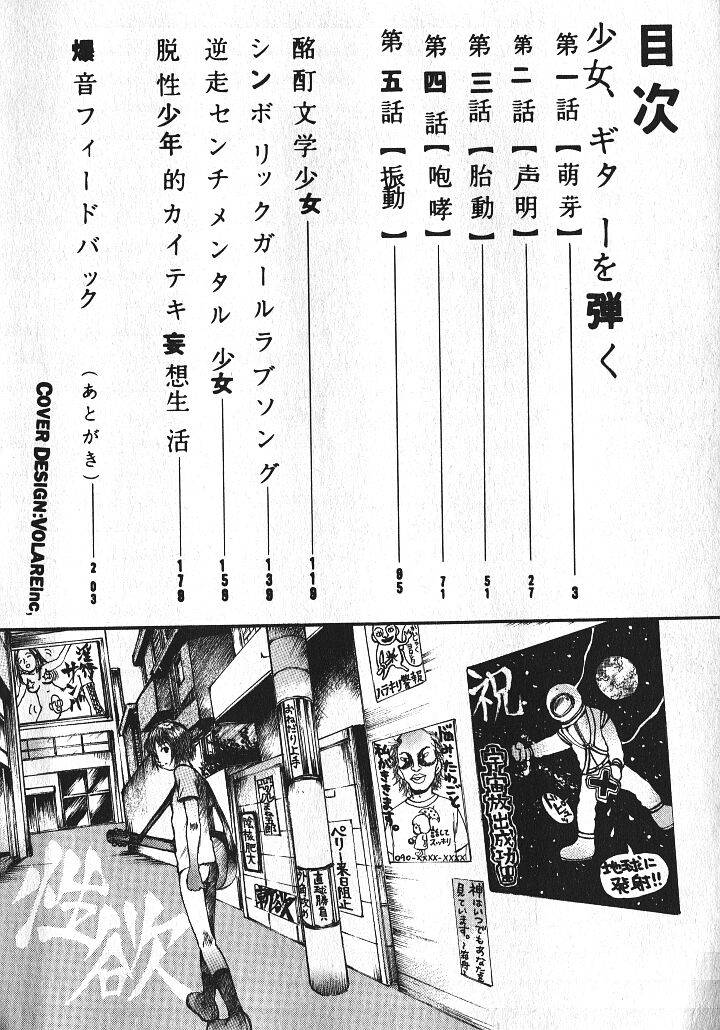 目次
少女、ギターを弾く
第一話【萌芽】 3
第二話【声明】 27
第三話【胎動】 51
第四話【咆哮】 71
第五話【振動】 95
酩酊文学少女 119
シンボリックガールラブソング 139
逆走センチメンタル少女 159
脱性少年的カイテキ妄想生活 179
爆音フィードバック (あとがき) 203
COVER DESIGN:VOLAREinc,
祝
宇宙放出成功
地球に
発射!!
ハラキリ警報
悩みたらごと
私がききます。
話して
スッキリ
090-XXXX-XXXX
神はいつでもあなたを
見ています。
おねだり上手
ペリー来日阻止
直球勝負
外角攻め
陰核肥大
性欲